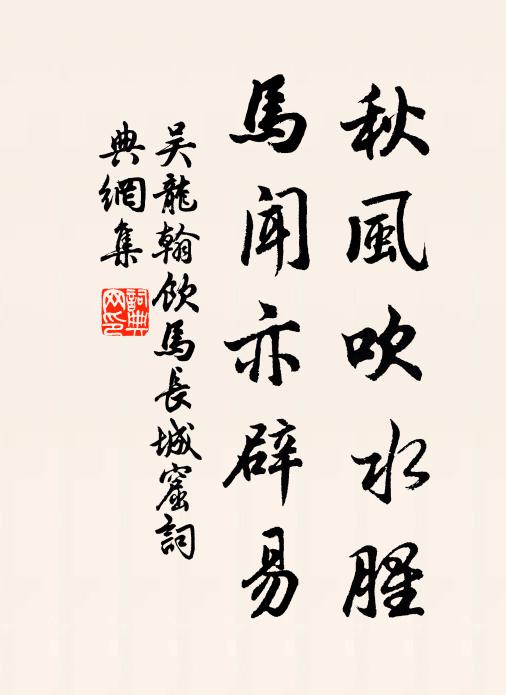 秋風吹水腥
馬聞亦辟易
吳龍翰飲馬長城窟詞
典網集
詞典網印